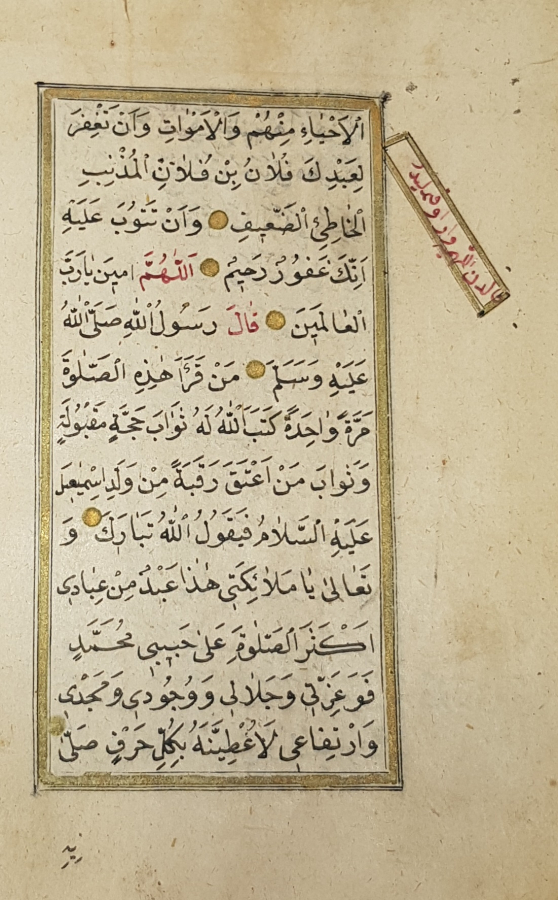 الْاَحْيَاءِ مِنْهُمْ وَالْاَمْوَاتِ وَاَنْ تَغْفِرَ
لِعَبْدِكَ فُلَانُ بْنِ فُلَانِ الْمُذْنِبِ
الْخَاطِئِ الضَّعِيفِ وَاَنْ تَتُوبَ عَلَيْهِ
اِنَّكَ غَفُورٌ رَحِيمٌ اَللّٰهُمَّ امِينَ يَارَبَّ
الْعَالَمِينَ قَالَ رَسُولُ اللّٰهِ صَلَّى اللّٰهُ
عَلَيْهِ وَسَلَّمَ مَنْ قَرَأَ هٰذِهِ الصَّلٰوةَ
مَرَّةً وَاحِدَةً كَتَبَ اللّٰهُ لَهُ ثَوَابَ حَجَّةٍ مَقْبُولَةٍ
وَثَوَابَ مَنْ اَعْتَقَ رَقَبَةً مِنْ وَلَدِ اِسْمٰعِيلَ
عَلَيْهِ السَّلَامُ فَيَقُولُ اللّٰهُ تَبَارَكَ وَ
تَعَالٰى يَا مَلَائِكَتِى هٰذَا عَبْدٌ مِنْ عِبَادِى
اَكْثَرَ الصَّلٰوةَ عَلٰى حَبِيبِى مُحَمَّدٍ
فَوَعِزَّتِى وَجَلَالِى وَوُجُودِى وَمَجْدِى
وَارْتِفَاعِى لَاُعْطِيَنَّهُ بِكُلِّ حَرْفٍ صَلَّى